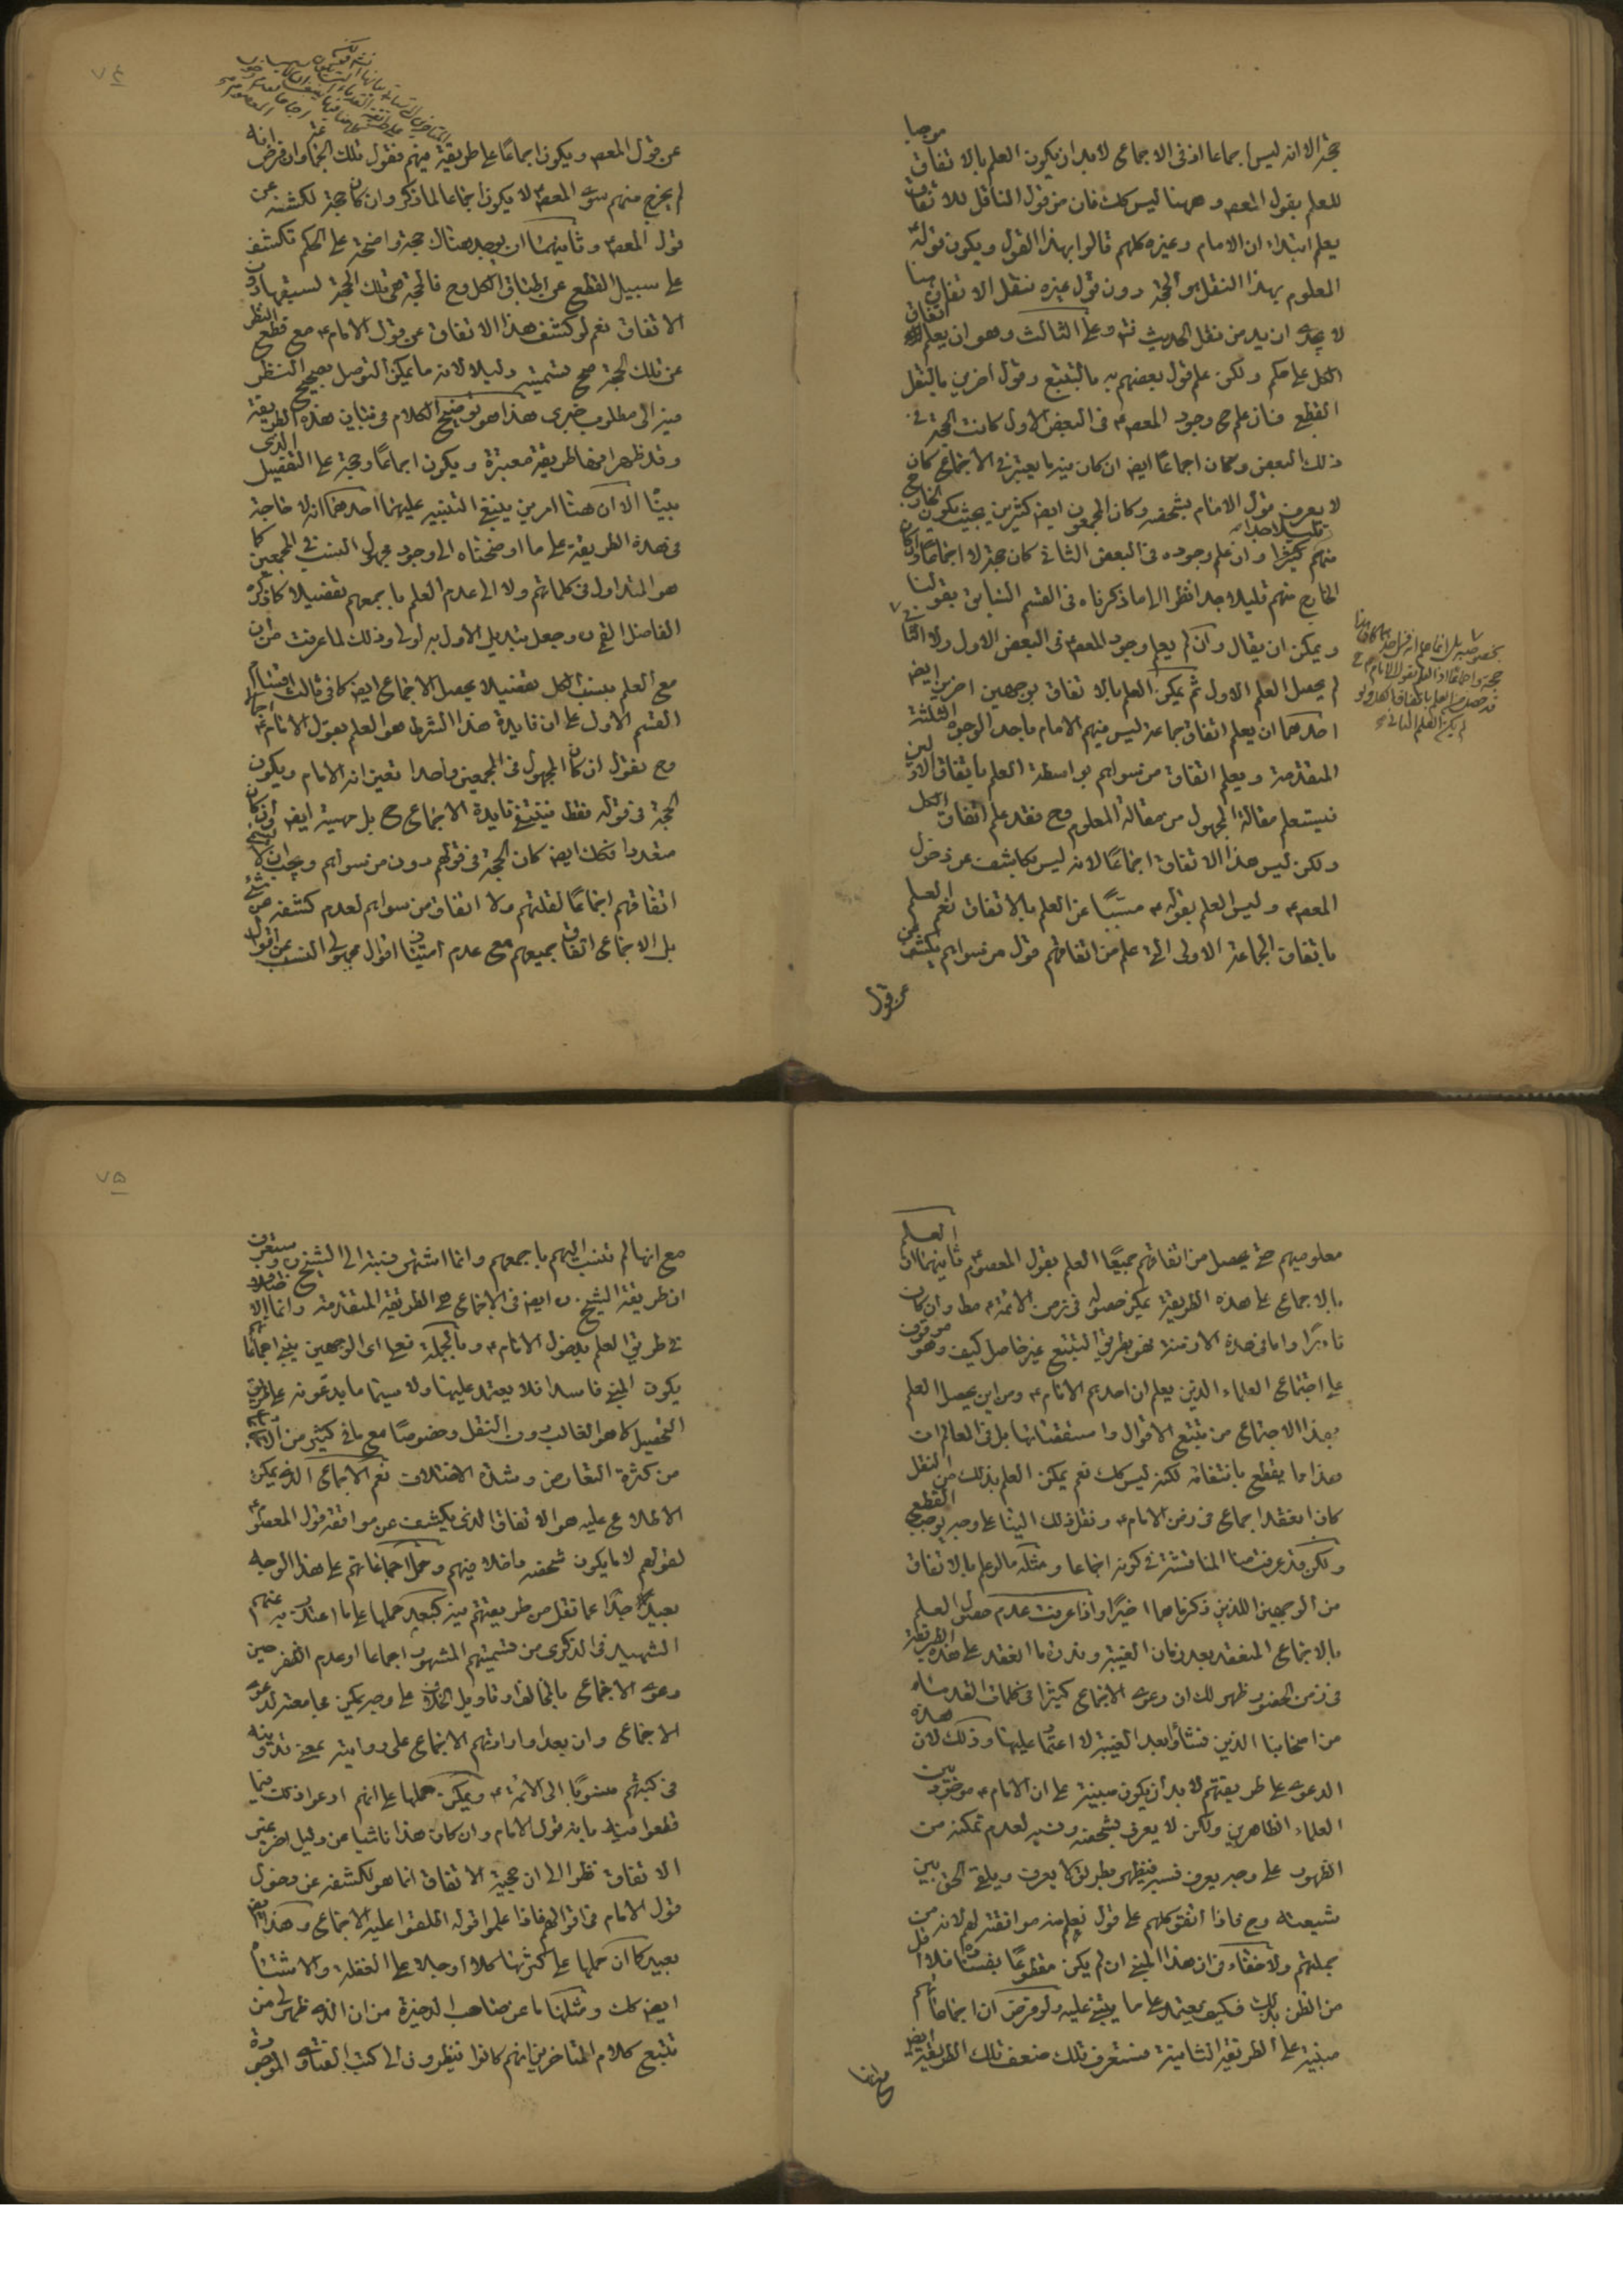 حجة الا انه ليس اجماعا اذ فى الاجماعى لابد ان يكون العلم بالاتفاق موجبا
للعلم بقول المعصوم و ههنا ليس كك فان من قول الناقل للاتفاق
يعلم ابتداء ان الامام وغيره كلهم قالوا بهذا القول ويكون قوله
المعلوم بهذا النقل هو الحجة دون قول غيره فنقل الاتفاق هنا
لا ازيد من نقل الحديث منه وعلى الثالث وهو ان يعلم اتفاق
الكل على حكم ولكن علم قول بعضهم به بالتتبع وقول اخرين بالنقل
القطعى فان علم ح وجود المعصوم فى البعض الاول كانت الحجة فى
ذلك البعض وكان اجماعا ايضا ان كان فيه ما يعتبر فى الاجماع كان
لا يعرف قول الامام بشخصه وكان المجمعون ايضا كثيرين بحيث يكون الخارج
منهم كثيرا وان علم وجوده فى البعض الثانى كان حجة لا اجماعا وان كان
الخارج منهم قليلا جدا نظرا الى ما ذكرناه فى القسم الثانى بقولنا
ويمكن ان يقال وان لم يعلم وجود المعصوم فى البعض الاول ولا الثانى
لم يحصل العلم الاول ثم يمكن العلم بالاتفاق بوجهين اخرين ايضا
احدهما ان يعلم اتفاق جماعة ليس فيهم الامام باحد الوجوه الثلثة
المتقدمة ويعلم اتفاق من سواهم بواسطة العلم باتفاق الاولين
فيستعلم مقالة المجهول من مقالة المعلوم وح فقد علم اتفاق الكل
ولكن ليس هذا الاتفاق اجماعا لانه ليس بكاشف عن دخول
المعصوم وليس العلم بقوله مسببا عن العلم بالاتفاق نعم العلم
باتفاق الجماعة الاولى التى علم من اتفاقهم قول من سواهم يكشف
عن قول
عن قول المعصوم ويكون اجماعا على طريقة منهم فنقول تلك الجماعة وان فرض انه
لم يخرج منهم سوى المعصوم لا يكون اجماعا لما ذكر وان كان حجة لكشفه عن
قول المعصوم وثانيهما ان يوجد هناك حجة واضحة على الحكم تكشف
على سبيل القطع عن اطباق الكل وح فالحجة هى تلك الحجة لسبقها دون
الاتفاق نعم لو كشف هذا الاتفاق عن قول الامام مع قطع النظر
عن تلك الحجة صح تسميته دليلا لانه ما يمكن التوصل بصحيح النظر
فيه الى مطلوب خبرى هذا هو توضيح الكلام فى بيان هذه الطريقة
وقد ظهر انها طريقة معتبرة ويكون اجماعا وحجة على التفصيل الذى
بينا الا ان هنا امرين ينبغى التنبيه عليهما احدهما انه لا حاجة
فى هذه الطريقة على ما اوضحناه الى وجود مجهول النسب فى المجمعين كما
هو المتداول فى كلماتهم ولا الى عدم العلم باجمعهم تفصيلا كما ذكره
الفاضل القمى وجعل تبديل الاول به اولى وذلك لما عرفت من ان
مع العلم بنسب الكل تفصيلا يحصل الاجماع ايضا كما فى ثالث اقسام
القسم الاول على ان فايدة هذا الشرط هو العلم بقول الامام اجمالا
وح نقول ان كان المجهول فى المجمعين واحدا تعين انه الامام ويكون
الحجة فى قوله فقط فينتفى فايدة الاجماع ح بل مهيته ايضا وان كان
متعددا فكك ايضا كان الحجة فى قولهم دون من سواهم ويجب ان لا يسمى
اتفاقهم اجماعا لقلتهم ولا اتفاق من سواهم لعدم كشفه عن شئ
بل الاجماع اتفاق جميعهم مع عدم امتياز اقوال مجهولى النسب عن اقوال
٧٤
العلم
معلوميهم حتى يحصل من اتفاقهم جميعا العلم بقول المعصوم ثانيهما ان
بالاجماع على هذه الطريقة يمكن حصوله فى زمن الائمة مطلقا وان كان
نادرا واما فى هذه الازمنة فهو بطريق التتبع غير حاصل كيف وهو موقوف
على اجتماع العلماء الذين يعلم ان احدهم الامام ومن اين يحصل العلم
بهذا الاجتماع من تتبع الاقوال واستقصائها بل فى العالم ان
هذا ما يقطع بانتفائه لكنه ليس كك نعم يمكن العلم بذلك من النقل
كان انعقد اجماعى فى زمن الامام ونقل ذلك الينا على وجه يوجب القطع
ولكن قد عرفت منا المناقشة فى كونه اجماعا ومثله ما لو علم بالاتفاق
من الوجهين اللذين ذكرناهما اخيرا واذا عرفت عدم حصول العلم
بالاجماع المنعقد بعد زمان الغيبة وندرة ما انعقد على هذه الطريقة
فى زمن الحضور ظهر لك ان دعوى الاجماع كثيرا فى كلمات القدماء
من اصحابنا الذين نشأوا بعد الغيبة لا اعتماد عليها وذلك لان هذه
الدعوى على طريقتهم لابد ان يكون مبينة على ان الامام موجود بين
العلماء الظاهرين ولكن لا يعرف بشخصه ونسبه لعدم تمكنه من
الظهور على وجه يعرف نسبه فيظهر بطريق لا يعرف ويلقى الحق بين
شيعته وح فاذا اتفق كلهم على قول نعلم منه موافقته لهم لانه من
جملتهم ولا خفاء فى ان هذا المبنى ان لم يكن مقطوعا بفساده فلا اقل
من الظن بذلك فكيف يعتمد على ما يبتنى عليه ولو فرض ان اجماعاتهم
مبنية على الطريقة الثانية فستعرف تلك ضعف تلك الطريقة ايضا
مع انها
مع انها لم تنسب اليهم باجمعهم وانما اشتهر نسبته الى الشيخ وستعرف
ان طريقة الشيخ ايضا فى الاجماع هى الطريقة المتقدمة وانما الاختلاف
فى طريق العلم بدخول الامام وبالجملة فعلى اى الوجهين يبنى اجماعاتهم
يكون المبنى فاسدا فلا يعتمد عليها ولا سيما ما يدعونه على طريق
التحصيل كما هو الغالب دون النقل وخصوصا مع ما فى كثير من
من كثرة التعارض وشدة الاختلاف نعم الاجماع الذى يمكن
الاطلاع عليه هو الاتفاق الذى يكشف عن موافقة قول المعصوم
لقولهم لا ما يكون شخصه داخلا فيهم وحمل اجماعاتهم على هذا الوجه
بعيد جدا عما نقل من طريقتهم فيه كبعد حملها على ما اعتذر به عنهم
الشهيد فى الذكرى من تسميتهم المشهور اجماعا او عدم الظفر حين
دعوى الاجماع بالمخالف او تاويل الخلاف على وجه يمكن مجامعته لدعوى
الاجماع وان بعد او ارادتهم الاجماع على روايته بمعنى تدوينه
فى كتبهم منسوبا الى الائمة ويمكن حملها على انهم ادعوا ذلك فيما
قطعوا فيه بانه قول الامام وان كان هذا ناشيا عن دليل اخر غير
الاتفاق نظرا الى ان حجية الاتفاق انما هو لكشفه عن دخول
قول الامام فى اقوالهم فاذا علموا قوله اطلقوا عليه الاجماع وهذا ايضا
بعيد كما ان حملها على كثرتها كلا او جلا على الغفلة والاشتباه
ايضا كك ومثلها ما عن صاحب الذخيرة من ان الذى ظهر لى من
تتبع كلام المتاخرين انهم كانوا ينظرون الى كتب الفتاوى الموجودة
٧٥